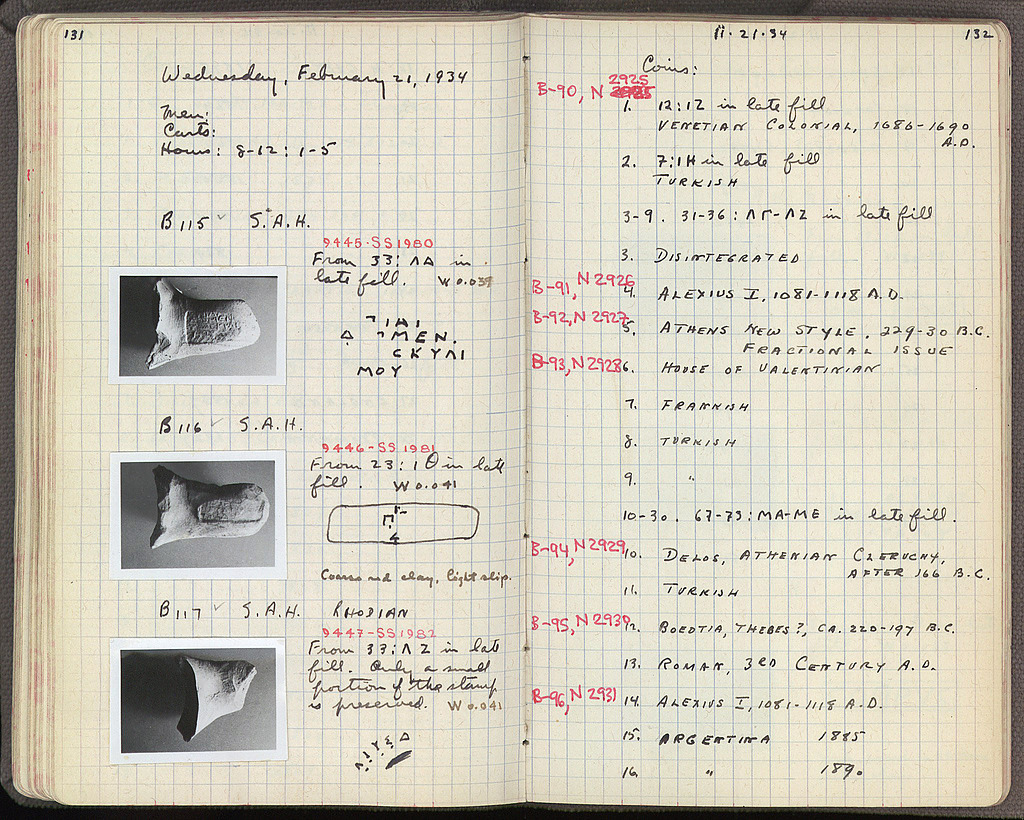 131
Wednesday, February 21, 1934
Men:
Carts:
Hours: 8-12: 1-5
B 115 ✓ S.A.H.
9445-SS1980
From 33: ΛΔ in
late fill. W 0.039
ΜΕΝ.
ϹΚΥΛΙ
ΜΟΥ
B 116 ✓ S.A.H.
9446-SS 1981
From 23: ΙΘ in late
fill. W 0.041
Coarse red clay, light slip.
B 117 ✓ S.A.H. RHODIAN
9447-SS1982
From 33: ΛΖ in late
fill. Only a small
portion of the stamp
is preserved. W 0.041
II·21·34
132
Coins:
B-90, N 2925
1. 12:IZ in late fill
VENETIAN COLONIAL, 1686-1690
A.D.
2. 7:ΙΗ in late fill
TURKISH
3-9. 31-36: ΛΓ-ΛΖ in late fill
3. DISINTEGRATED
B-91, N 2926 4. ALEXIUS I, 1081-1118 A.D.
B-92, N 2927 5. ATHENS NEW STYLE. 229-30 B.C.
FRACTIONAL ISSUE
B-93, N 2928 6. HOUSE OF VALENTINIAN
7. FRANKISH
8. TURKISH
9. "
10-30. 67-73: ΜΑ-ΜΕ in late fill.
B-94, N 2929 10. DELOS, ATHENIAN CLERUCHY,
AFTER 166 B.C.
11. TURKISH
B-95, N 2930 12. BOEOTIA, THEBES?, CA. 220-197 B.C.
13. ROMAN, 3RD CENTURY A.D.
B-96, N 2931 14. ALEXIUS I, 1081-1118 A.D.
15. ARGENTINA 1885
16. " 1890